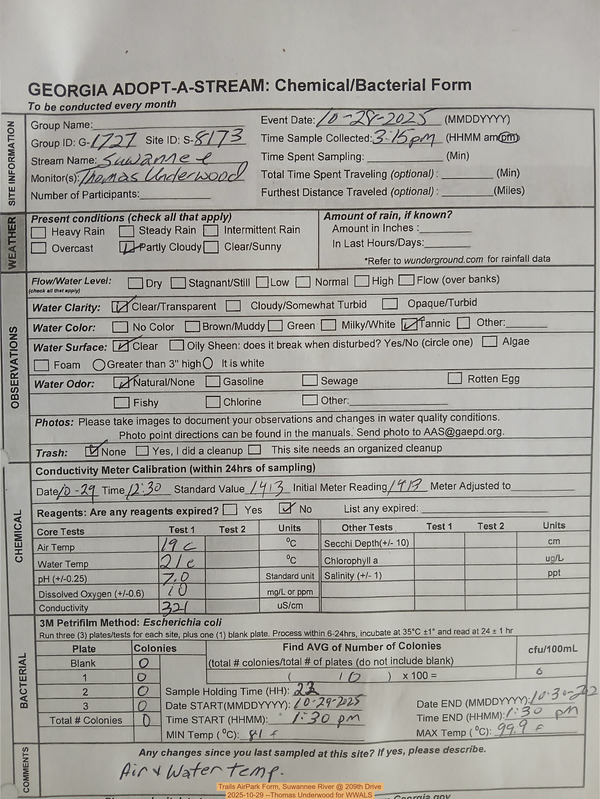 GEORGIA ADOPT-A-STREAM: Chemical/Bacterial Form
To be conducted every month
SITE INFORMATION
Group Name:
Group ID: G-1727 Site ID: S-8173
Stream Name: Suwannee
Monitor(s): Thomas Underwood
Number of Participants:
Event Date: 10-28-2025 (MMDDYYYY)
Time Sample Collected: 3:15pm (HHMM am/pm)
Time Spent Sampling: (Min)
Total Time Spent Traveling (optional): (Min)
Furthest Distance Traveled (optional): (Miles)
WEATHER
Present conditions (check all that apply)
Heavy Rain Steady Rain Intermittent Rain
Overcast Partly Cloudy Clear/Sunny
Amount of rain, if known?
Amount in Inches :
In Last Hours/Days:
*Refer to wunderground.com for rainfall data
OBSERVATIONS
Flow/Water Level: Dry Stagnant/Still Low Normal High Flow (over banks)
(check all that apply)
Water Clarity: Clear/Transparent Cloudy/Somewhat Turbid Opaque/Turbid
Water Color: No Color Brown/Muddy Green Milky/White Tannic Other:
Water Surface: Clear Oily Sheen: does it break when disturbed? Yes/No (circle one) Algae
Foam Greater than 3" high It is white
Water Odor: Natural/None Gasoline Sewage Rotten Egg
Fishy Chlorine Other:
Photos: Please take images to document your observations and changes in water quality conditions.
Photo point directions can be found in the manuals. Send photo to AAS@gaepd.org.
Trash: None Yes, I did a cleanup This site needs an organized cleanup
CHEMICAL
Conductivity Meter Calibration (within 24hrs of sampling)
Date 10-29 Time 12:30 Standard Value 1413 Initial Meter Reading 1413 Meter Adjusted to
Reagents: Are any reagents expired? Yes No List any expired:
Core Tests Test 1 Test 2 Units Other Tests Test 1 Test 2 Units
Air Temp 19c °C Secchi Depth(+/- 10) cm
Water Temp 21c °C Chlorophyll a ug/L
pH (+/-0.25) 7.0 Standard unit Salinity (+/- 1) ppt
Dissolved Oxygen (+/-0.6) 10 mg/L or ppm
Conductivity 321 uS/cm
BACTERIAL
3M Petrifilm Method: Escherichia coli
Run three (3) plates/tests for each site, plus one (1) blank plate. Process within 6-24hrs, incubate at 35°C ±1° and read at 24 ± 1 hr
Plate Colonies
Blank 0
1 0
2 0
3 0
Total # Colonies 0
Find AVG of Number of Colonies
(total # colonies/total # of plates (do not include blank)
( 10 ) x 100 =
cfu/100mL
Sample Holding Time (HH): 22
Date START(MMDDYYYY): 10-29-2025
Time START (HHMM): 1:30 pm
MIN Temp (°C): 81 F
Date END (MMDDYYYY): 10-30-202
Time END (HHMM): 1:30 pm
MAX Temp (°C): 99.9 F
COMMENTS
Any changes since you last sampled at this site? If yes, please describe.
Air & Water temp.
Trails AirPark Form, Suwannee River @ 209th Drive
2025-10-29 --Thomas Underwood for WWALS